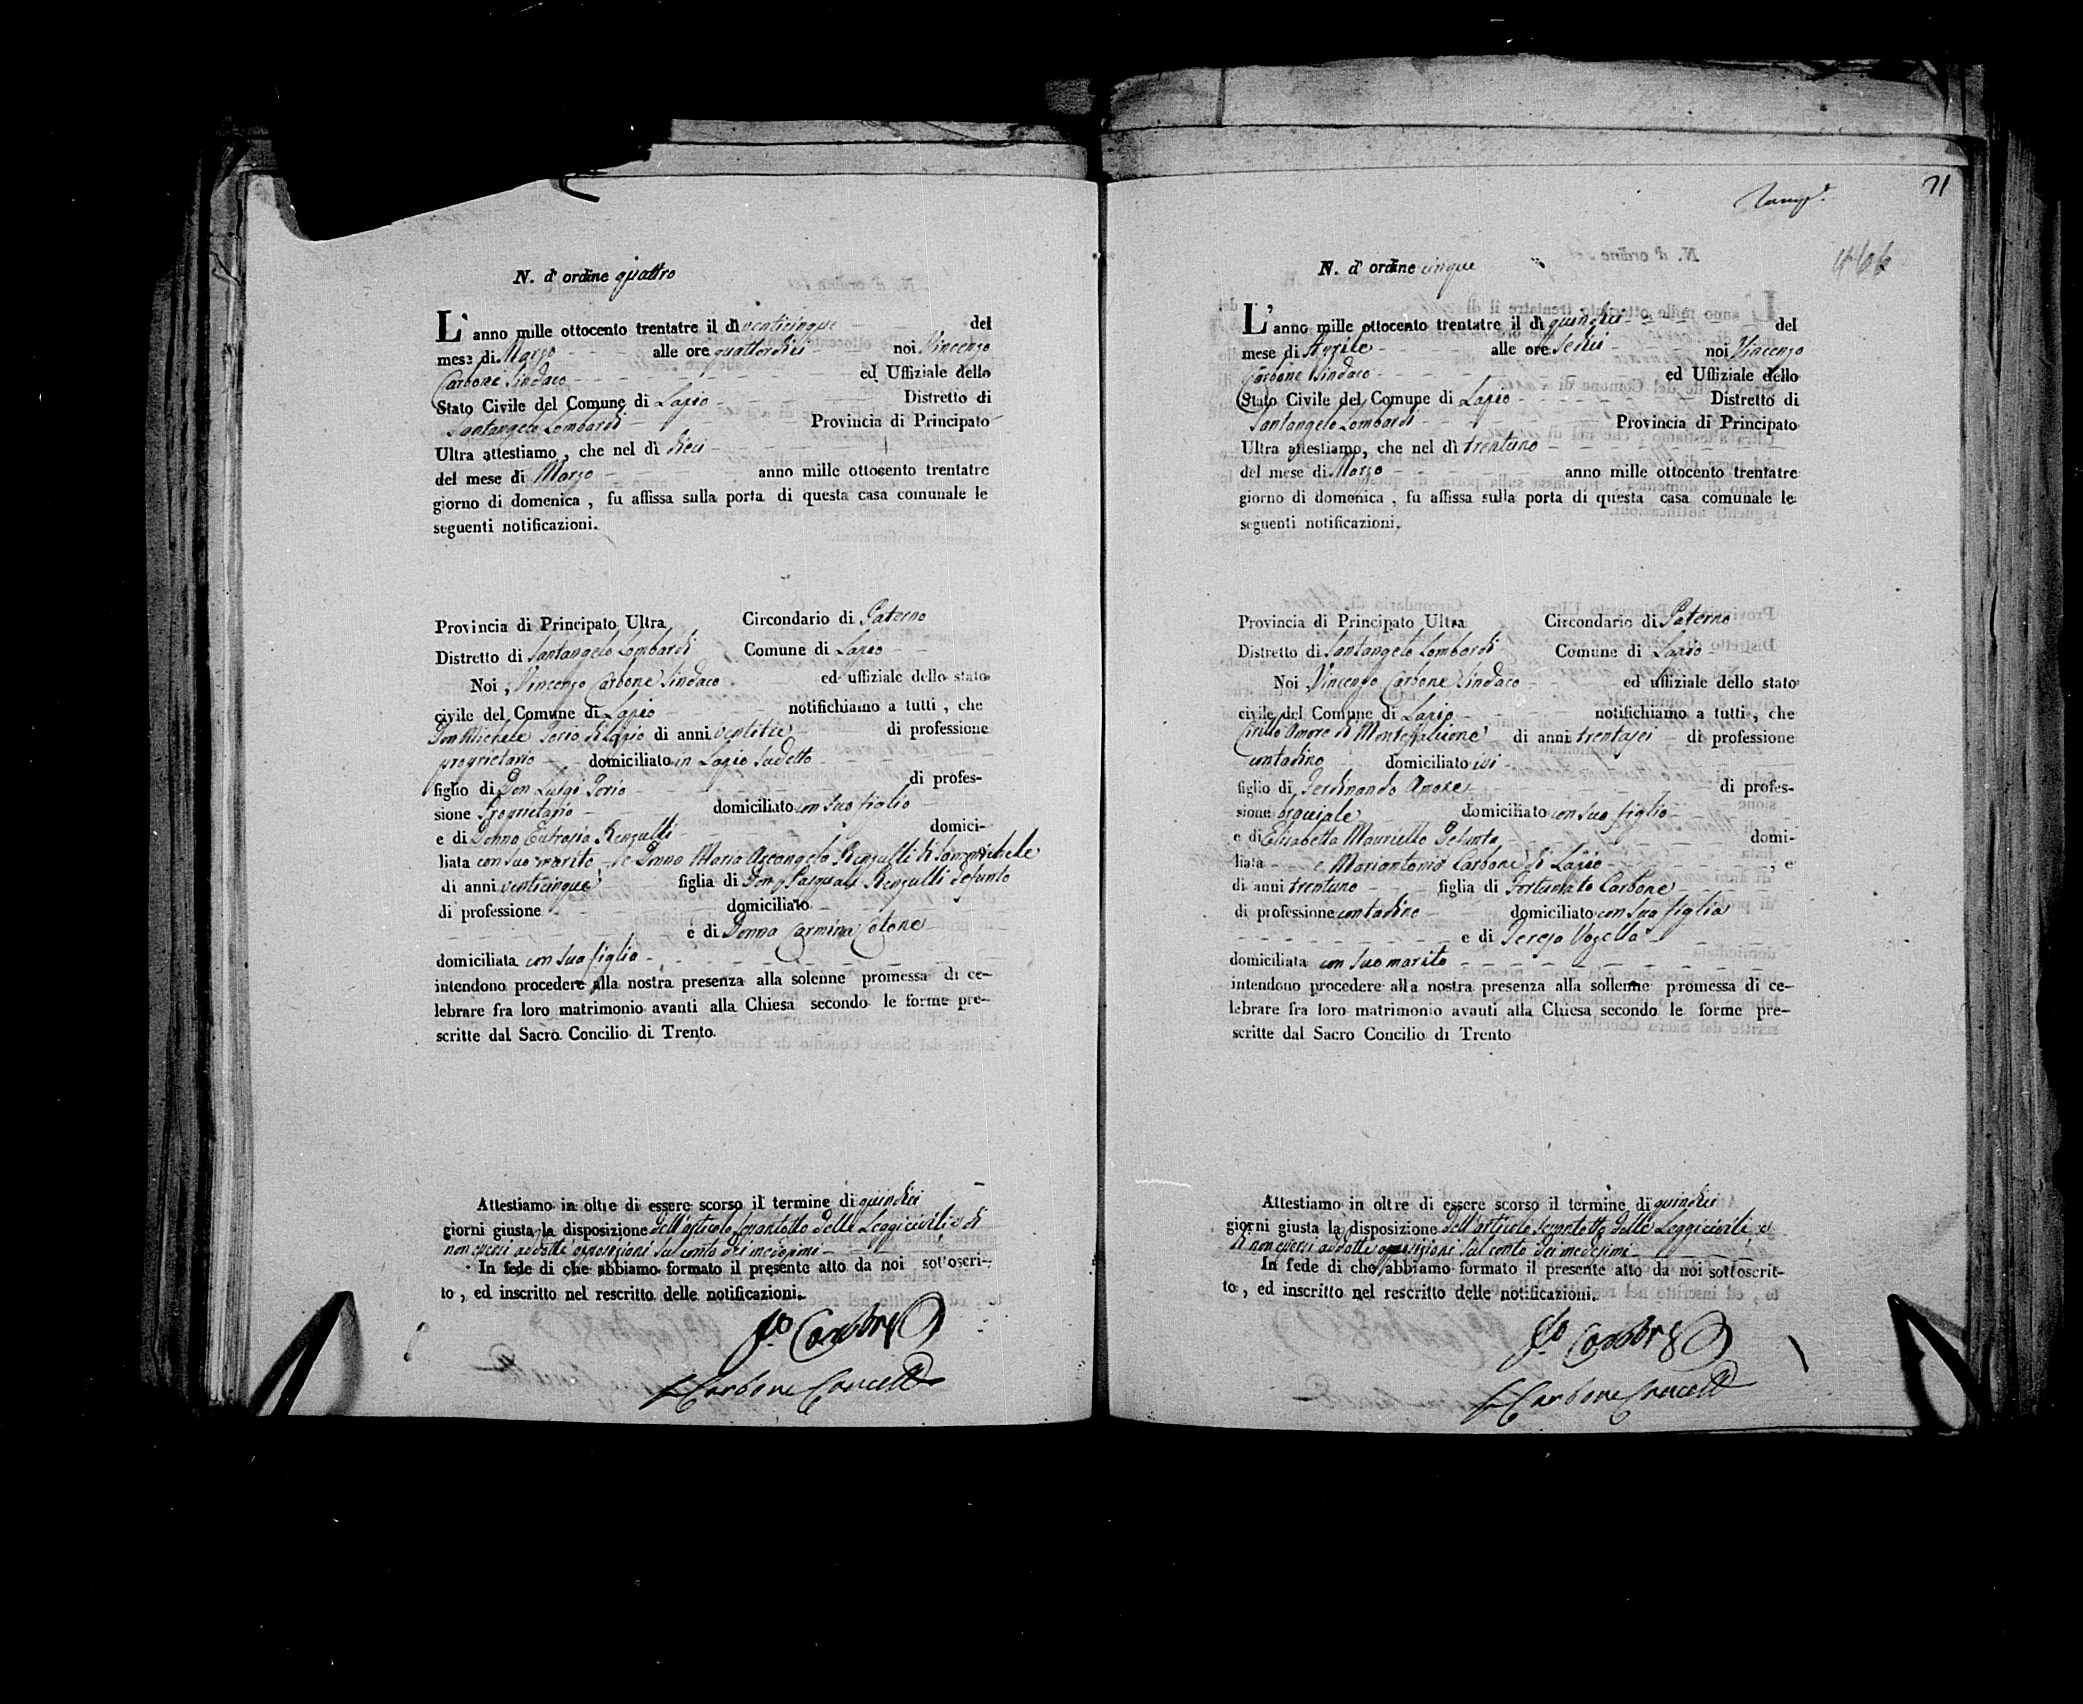 N. d' ordine quattro
L' anno mille ottocento trentatre il dì venticinque del
mese di Marzo alle ore quattordici noi Vincenzo
Carbone Sindaco ed Uffiziale dello
Stato Civile del Comune di Lapio Distretto di
Santangelo Lombardi Provincia di Principato
Ultra attestiamo, che nel dì dieci
del mese di Marzo anno mille ottocento trentatre
giorno di domenica, fu affissa sulla porta di questa casa comunale le
seguenti notificazioni.
Provincia di Principato Ultra Circondario di Paterno
Distretto di Santangelo Lombardi Comune di Lapio
Noi, Vincenzo Carbone Sindaco ed uffiziale dello stato
civile del Comune di Lapio notifichiamo a tutti, che
Don Michele di Lapio di anni ventitre di professione
proprietario domiciliato in Lapio sudetto
figlio di Don Luigi di profes-
sione Proprietario domiciliato con suo figlio
e di Donna Eufrasia Renzulli domici-
liata con suo marito e Donna Maria Arcangela Renzulli di Sanmichele
di anni venticinque figlia di Don Pasquale Renzulli defunto
di professione domiciliato
e di Donna Carmina Cotone
domiciliata con sua figlia
intendono procedere alla nostra presenza alla solenne promessa di ce-
lebrare fra loro matrimonio avanti alla Chiesa secondo le forme pre-
scritte dal Sacro Concilio di Trento.
Attestiamo in oltre di essere scorso il termine di quindici
giorni giusta la disposizione dell'articolo sessantotto delle Leggi civili e di
non essersi addotte opposizioni sul conto dei medesimi
In fede di che abbiamo formato il presente atto da noi sottoscri-
to, ed inscritto nel rescritto delle notificazioni.
Carbone Cancell
71
466
N. d' ordine cinque
L' anno mille ottocento trentatre il dì quindici del
mese di Aprile alle ore sedici noi Vincenzo
Carbone Sindaco ed Uffiziale dello
Stato Civile del Comune di Lapio Distretto di
Santangelo Lombardi Provincia di Principato
Ultra attestiamo, che nel dì trentuno
del mese di Marzo anno mille ottocento trentatre
giorno di domenica, fu affissa sulla porta di questa casa comunale le
seguenti notificazioni.
Provincia di Principato Ultra Circondario di Paterno
Distretto di Santangelo Lombardi Comune di Lapio
Noi Vincenzo Carbone Sindaco ed uffiziale dello stato
civile del Comune di Lapio notifichiamo a tutti, che
Cirillo Amore di Montefalcione di anni trentasei di professione
contadino domiciliato ivi
figlio di Ferdinando Amore di profes-
sione domiciliato con suo figlio
e di Elisabetta Mauriello Defunta domi-
liata e Mariantonia Carbone di Lapio, e
di anni trentuno figlia di Fortunato Carbone
di professione contadino domiciliato con sua figlia
e di Teresa Vozella
domiciliata con suo marito
intendono procedere alla nostra presenza alla sollenne promessa di ce-
lebrare fra loro matrimonio avanti alla Chiesa secondo le forme pre-
scritte dal Sacro Concilio di Trento
Attestiamo in oltre di essere scorso il termine di quindici
giorni giusta la disposizione dell'articolo sessantotto delle Leggi civili, e
di non essersi addotte opposizioni sul conto dei medesimi
In fede di che abbiamo formato il presente atto da noi sottoscrit-
to, ed inscritto nel rescritto delle notificazioni.
Carbone Cancell